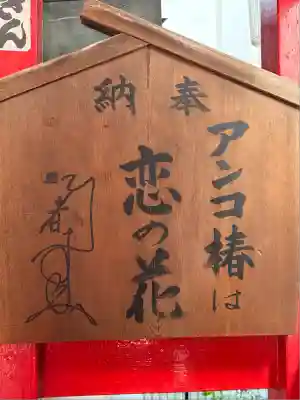 奉納
アンコ椿は
恋の花
さん